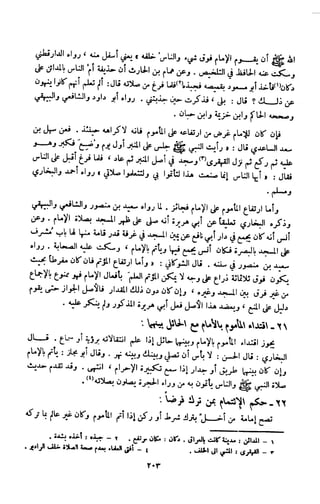 ﷺ أن يقوم الإمام فوق شيء والناس خلفه ، يعني أسفل منه ، رواه الدارقطني
وسكت عنه الحافظ في التلخيص . وعن همام بن الحارث أن حذيفة أم الناس بالمدائن على
دكان فأخذ أبو مسعود بقميصه فجبذه فلما فرغ من صلاته قال : ألم تعلم أنهم كانوا ينهون
عن ذلك ؟ قال : بلى ، فذكرت حين جذبتني . رواه أبو داود والشافعي والبيهقي
وصححه الحاكم وابن خزيمة وابن حبان .
فإن كان للإمام غرض من ارتفاعه على المأموم فإنه لا كراهة حينئذ . فعن سهل بن
سعد الساعدي قال : « رأيت النبي ﷺ جلس على المنبر أول يوم وضع فكبر وهو
عليه ثم ركع ثم نزل القهقرى(٣) وسجد في أصل المنبر ثم عاد ، فلما فرغ أقبل على الناس
فقال : « أيها الناس إنما صنعت هذا لتأتموا بي ولتتعلموا صلاتي » رواه أحمد والبخاري
ومسلم .
وأما ارتفاع المأموم على الإمام فجائز . لما رواه سعيد بن منصور والشافعي والبيهقي
وذكره البخاري تعليقاً عن أبي هريرة أنه صلى على ظهر المسجد بصلاة الإمام . وعن
أنس أنه كان يجمع في دار أبي نافع عن يمين المسجد في غرفة قدر قامة منها لها باب مشرف
على المسجد بالبصرة فكان أنس يجمع فيها ويأتم بالإمام ، وسكت عليه الصحابة . رواه
سعيد بن منصور في سننه . قال الشوكاني : « وأما ارتفاع المؤتم فإن كان مفرطاً بحيث
يكون فوق ثلاثمائة ذراع على وجه لا يمكن المؤتم العلم بأفعال الإمام فهو ممنوع بالإجماع
من غير فرق بين المسجد وغيره ، وإن كان دون ذلك المقدار فالأصل الجواز حتى يقوم
دليل على المنع ، ويعضد هذا الأصل فعل أبي هريرة المذكور ولم ينكر عليه .
٢١ - اقتداء المأموم بالأمام مع الحائل بينهما :
يجوز اقتداء المأموم بالإمام وبينهما حائل إذا علم انتقالاته برؤية أو سماع . قال
البخاري : قال الحسن : لا بأس أن تصلي وبينك وبينه نهر . وقال أبو مجلز : يأتم بالإمام
وإن كان بينهما طريق أو جدار إذا سمع تكبيرة الإحرام ، انتهى . وقد تقدم حديث
صلاة النبي ﷺ والناس يأتمون به من وراء الحجرة يصلون بصلاته(٤) .
٢٢ - حكم الإئتمام بمن ترك فرضاً :
تصح إمامة من أخل بترك شرط أو ركن إذا أتم المأموم وكان غير عالم بما تركه
١ - المدائن : مدينة كانت بالعراق . دكان : مكان مرتفع . ٢ - جبذه : أخذه بشدة .
٣ - القهقرى : المشي الى الخلف . ٤ -
٢٠٣